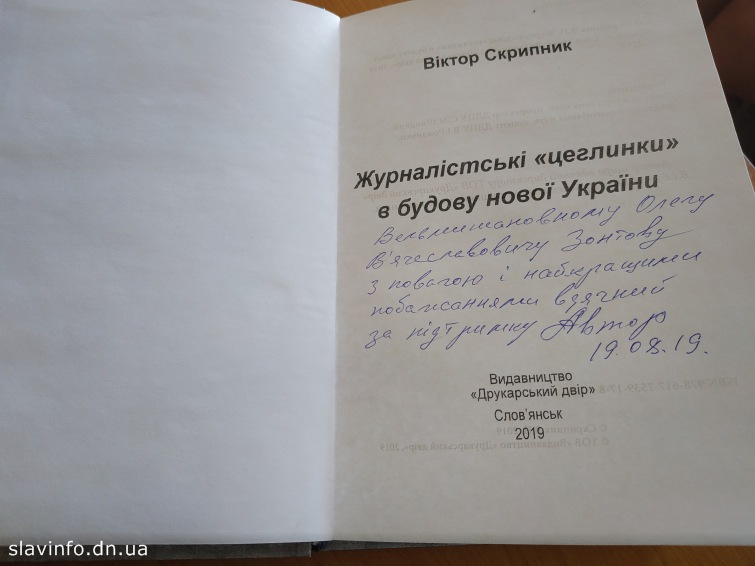 Віктор Скрипник
Журналістські «цеглинки»
в будову нової України
Вельмишановному Олегу
В'ячеславовичу Зонтову
з повагою і найкращими
побажаннями вдячний
за підтримку Автор
19.08.19.
Видавництво
«Друкарський двір»
Слов'янськ
2019
slavinfo.dn.ua